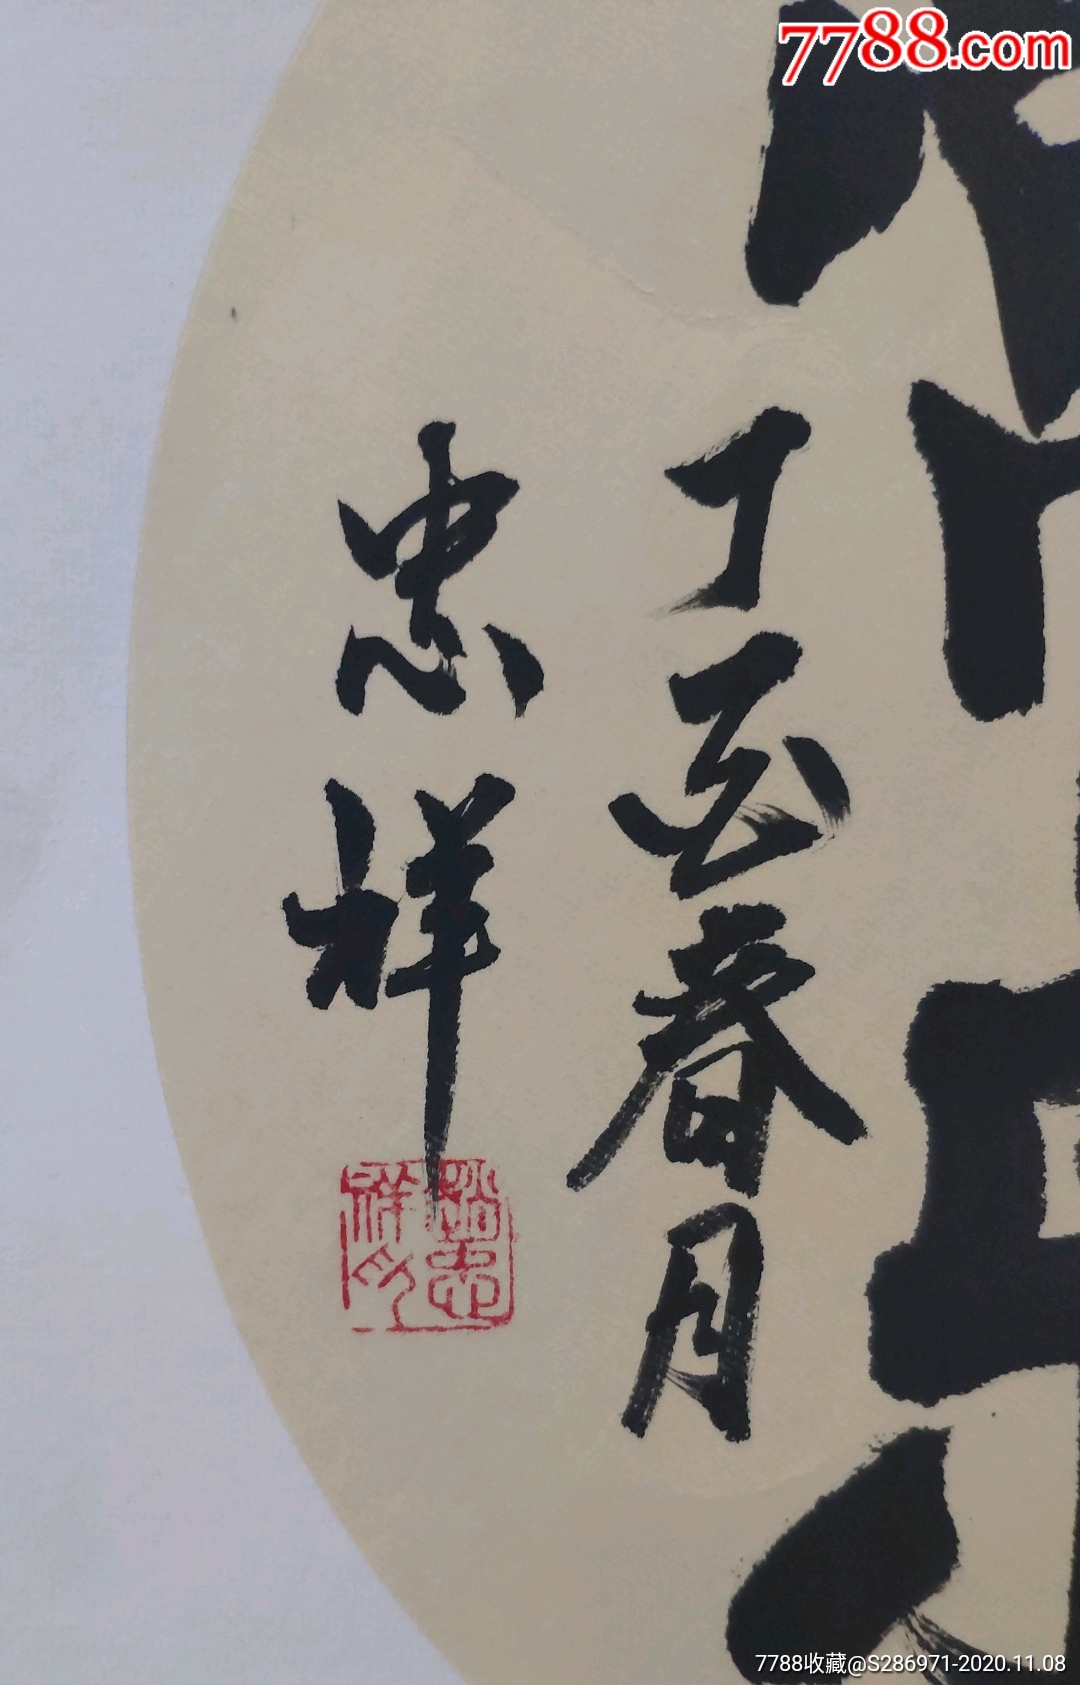 7788.com
丁亥春月
忠祥
趙忠
祥印
7788收藏@S286971-2020.11.08